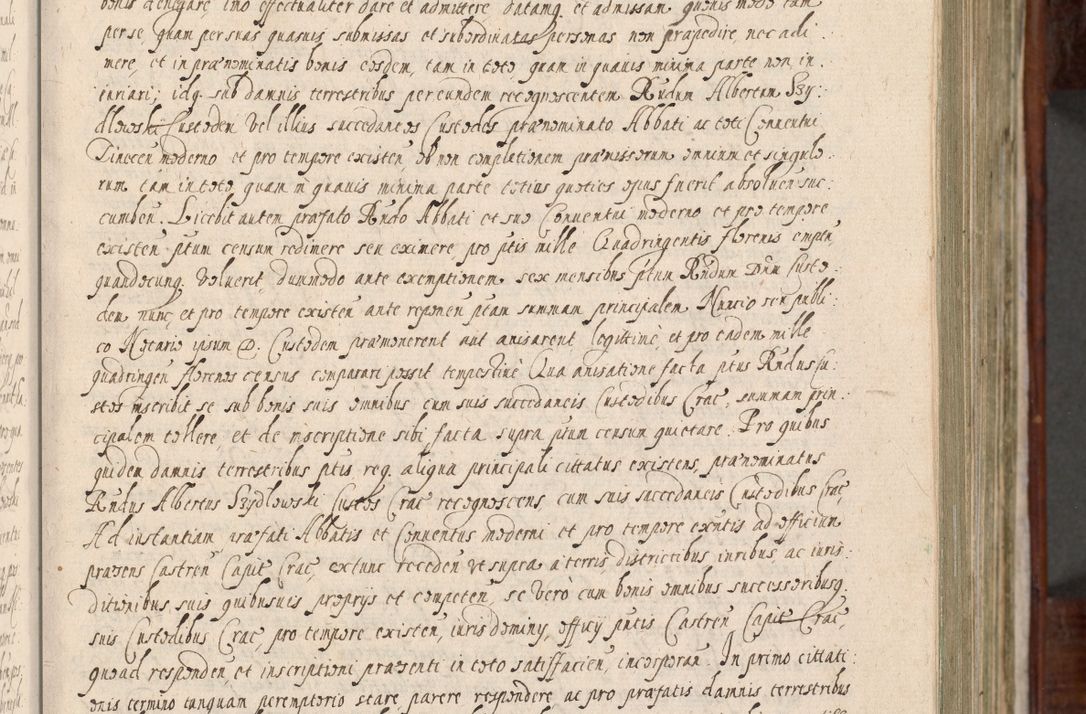 bonis denegare, imo effectualiter dare et admittere datamq et admissam quovis modo tam
per se quam per suas quasvis submissas et subordinatas personas non præpedire, nec adi:
mere, et in prænominatis bonis eosdem, tam in toto, quam in quavis minima parte non in:
iuriari; idq sub damnis terrestribus per eundem recognoscentem Rndum Albertum Szy:
dlowski Custodem Vel illius succedaneos Custodes prænominato Abbati ac toti Conventui
Tinecen moderno et pro tempore existen ob non completionem præmissorum omnium et singulo:
rum tam in toto quam in quavis minima parte toties quoties opus fuerit absolven suc:
cumben. Licebit autem præfato Rndo Abbati et suo Conventui moderno et pro tempore
existen ptum censum redimere seu eximere pro ptis mille Quadringentis florenis empen
quandocunq voluerit, dummodo ante exemptionem sex mensibus ptum Rndum Dnum Custo:
dem nunc et pro tempore existen ante reponen ptam summam principalem Nuncio seu publi:
co Notario ipsum D. Custodem præmonerent aut avisarent legittimè, et pro eadem mille
quadringen florenos census comparari possit tempestivè Qua avisatione facta ptus Rndus Cu:
stos inscribit se sub bonis suis omnibus cum suis succedaneis Custodibus Crac, summam prin:
cipalem tollere, et de inscriptione sibi facta supra ptum censum quietare. Pro quibus
quidem damnis terrestribus ptis, req. aliqua principali cittatus existens, prænominatus
Rndus Albertus Szydlowski Custos Crac recognoscens, cum suis succedaneis Custodibus Crac,
Ad instantiam præfati Abbatis et Conventus moderni et pro tempore exntis ad officium
præsens Castren Capit Crac, extunc receden ut supra a terris districtibus iuribus, ac iuris:
ditionibus suis quibusvis proprijs et competen, se verò cum bonis omnibus successoribusq
suis Custodibus Crac, pro tempore existen, iurisdominij, officij pntis Castren Capit Crac,
quoad responden, et inscriptioni præsenti in toto satisfacien, incorporan. In primo cittati:
onis termino tanquam peremptorio stare, parere respondere ac pro præfatis damnis terrestribus